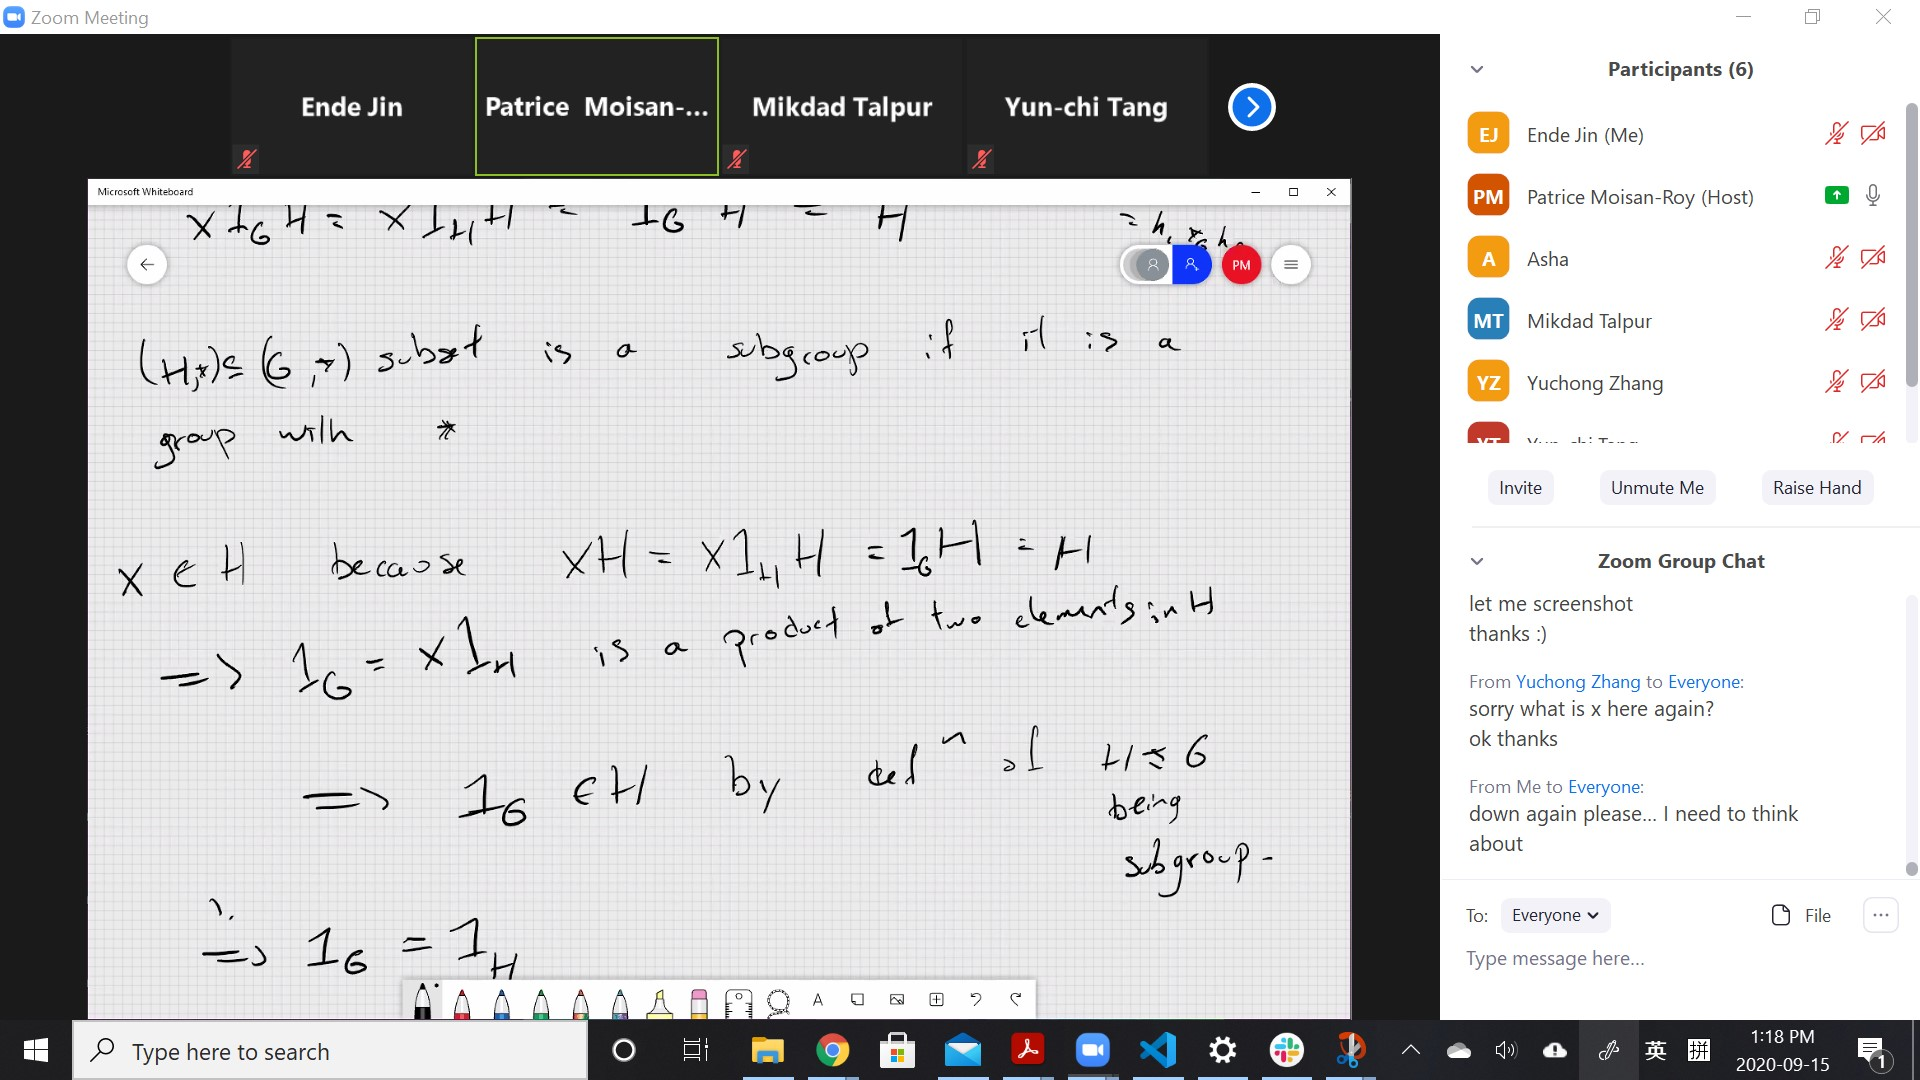 Zoom Meeting
Ende Jin
Patrice Moisan-...
Mikdad Talpur
Yun-chi Tang
Microsoft Whiteboard
x 1G H = x 1H H = 1G H = H
= h
PM
(H,*) ⊆ (G,*) subset is a subgroup if it is a
group with *
x ∈ H because xH = x1H H = 1G H = H
=> 1G = x 1H is a product of two elements in H
=> 1G ∈ H by def n of H ≤ G
being
subgroup -
=> 1G = 1H
A
Participants (6)
EJ Ende Jin (Me)
PM Patrice Moisan-Roy (Host)
A Asha
MT Mikdad Talpur
YZ Yuchong Zhang
YT Yun-chi Tang
Invite
Unmute Me
Raise Hand
Zoom Group Chat
let me screenshot
thanks :)
From Yuchong Zhang to Everyone:
sorry what is x here again?
ok thanks
From Me to Everyone:
down again please... I need to think
about
To: Everyone
File
Type message here...
Type here to search
英
拼
1:18 PM
2020-09-15
1